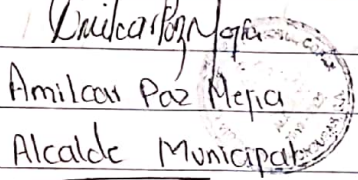 Amilcar Paz Mejia
Amilcar Paz Mejia
Alcalde Municipal